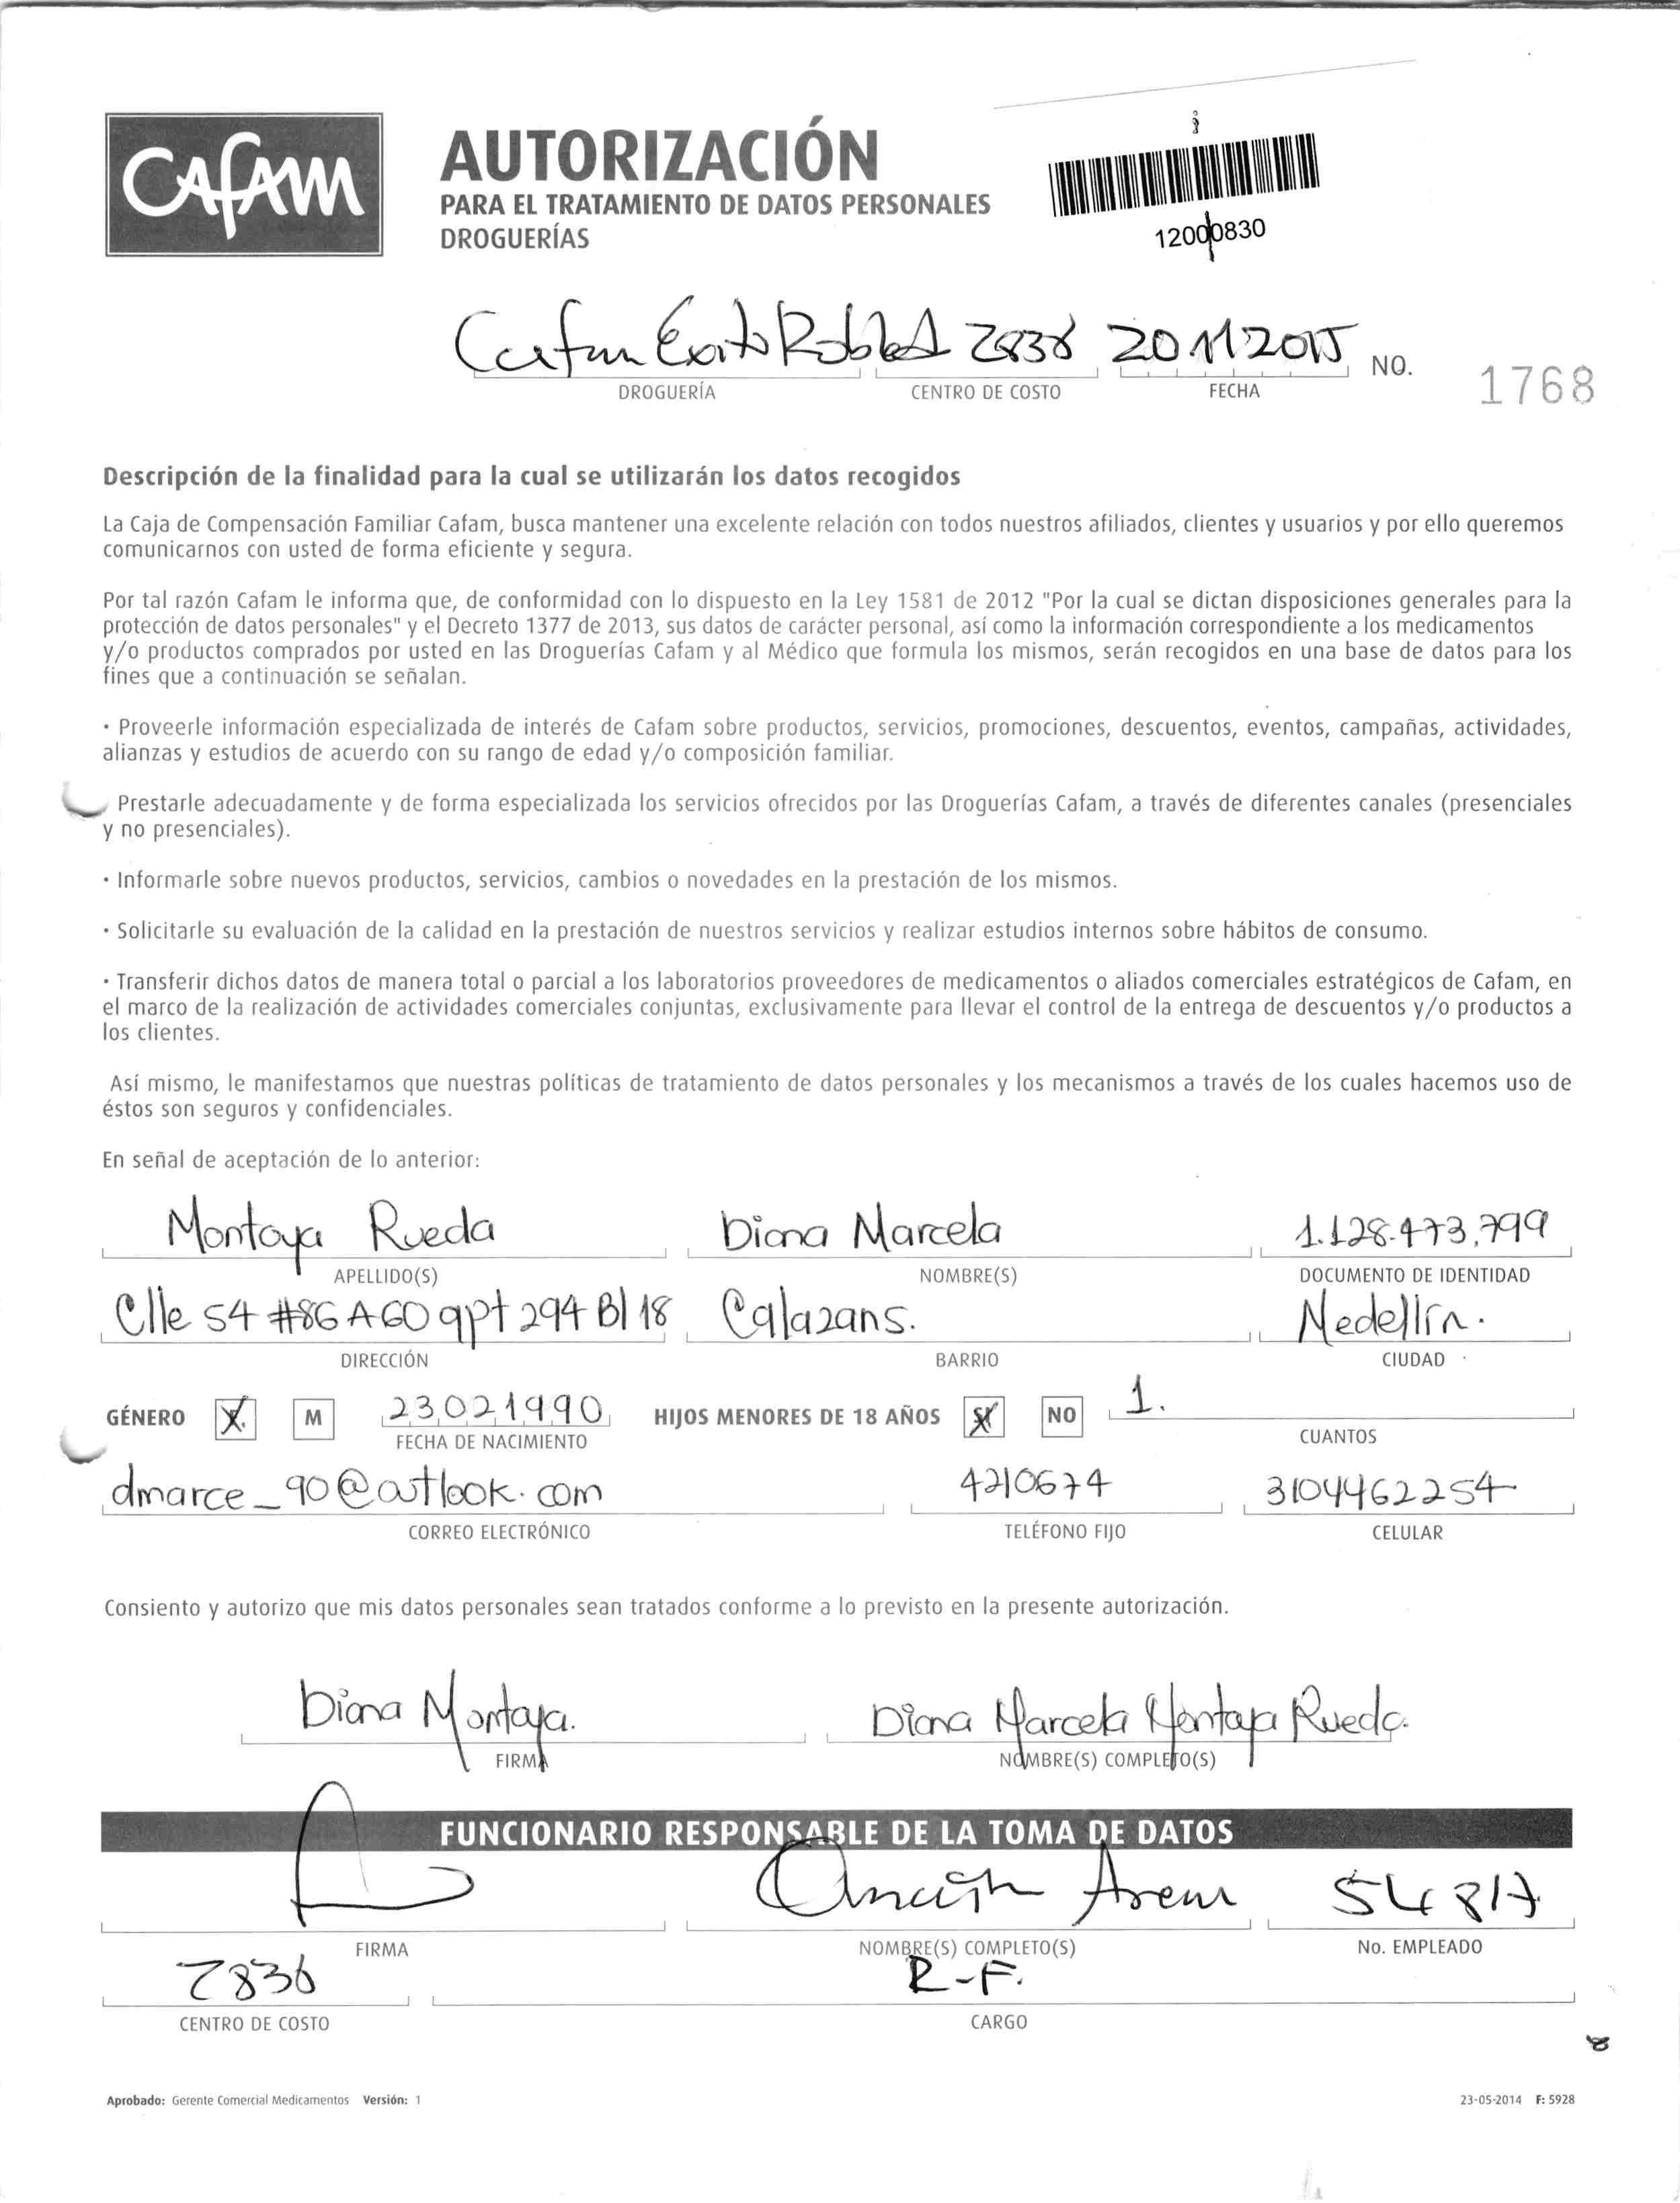 Cafam
AUTORIZACIÓN
PARA EL TRATAMIENTO DE DATOS PERSONALES
DROGUERÍAS
12000830
Cafam Exito Robledo 2836 20 11 2015 NO. 1768
DROGUERÍA CENTRO DE COSTO FECHA
Descripción de la finalidad para la cual se utilizarán los datos recogidos
La Caja de Compensación Familiar Cafam, busca mantener una excelente relación con todos nuestros afiliados, clientes y usuarios y por ello queremos
comunicarnos con usted de forma eficiente y segura.
Por tal razón Cafam le informa que, de conformidad con lo dispuesto en la Ley 1581 de 2012 "Por la cual se dictan disposiciones generales para la
protección de datos personales" y el Decreto 1377 de 2013, sus datos de carácter personal, así como la información correspondiente a los medicamentos
y/o productos comprados por usted en las Droguerías Cafam y al Médico que formula los mismos, serán recogidos en una base de datos para los
fines que a continuación se señalan.
· Proveerle información especializada de interés de Cafam sobre productos, servicios, promociones, descuentos, eventos, campañas, actividades,
alianzas y estudios de acuerdo con su rango de edad y/o composición familiar.
Prestarle adecuadamente y de forma especializada los servicios ofrecidos por las Droguerías Cafam, a través de diferentes canales (presenciales
y no presenciales).
· Informarle sobre nuevos productos, servicios, cambios o novedades en la prestación de los mismos.
· Solicitarle su evaluación de la calidad en la prestación de nuestros servicios y realizar estudios internos sobre hábitos de consumo.
· Transferir dichos datos de manera total o parcial a los laboratorios proveedores de medicamentos o aliados comerciales estratégicos de Cafam, en
el marco de la realización de actividades comerciales conjuntas, exclusivamente para llevar el control de la entrega de descuentos y/o productos a
los clientes.
Así mismo, le manifestamos que nuestras políticas de tratamiento de datos personales y los mecanismos a través de los cuales hacemos uso de
éstos son seguros y confidenciales.
En señal de aceptación de lo anterior:
Montoya Rueda Diana Marcela 1.128.473.799
APELLIDO(S) NOMBRE(S) DOCUMENTO DE IDENTIDAD
Clle 54 #86 A 60 apt 294 Bl 18 Calazans. Medellín.
DIRECCIÓN BARRIO CIUDAD
GÉNERO X. M 23021990 HIJOS MENORES DE 18 AÑOS SI NO 1.
FECHA DE NACIMIENTO CUANTOS
dmarce_90@outlook.com 4210674 3104462254
CORREO ELECTRÓNICO TELÉFONO FIJO CELULAR
Consiento y autorizo que mis datos personales sean tratados conforme a lo previsto en la presente autorización.
Diana Montoya. Diana Marcela Montoya Rueda.
FIRMA NOMBRE(S) COMPLETO(S)
FUNCIONARIO RESPONSABLE DE LA TOMA DE DATOS
54817
FIRMA NOMBRE(S) COMPLETO(S) No. EMPLEADO
2836 R-F.
CENTRO DE COSTO CARGO
Aprobado: Gerente Comercial Medicamentos Versión: 1 23-05-2014 F: 5928